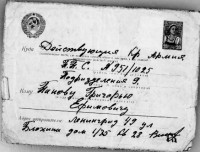 Куда Действующая Кр. Армия
П.П.С. № 951/1025
Подразделение 9.
Кому Панову Григорью
Ефимовичу
Ленинград 49 ул
Блохина дом 1/75 кв 28